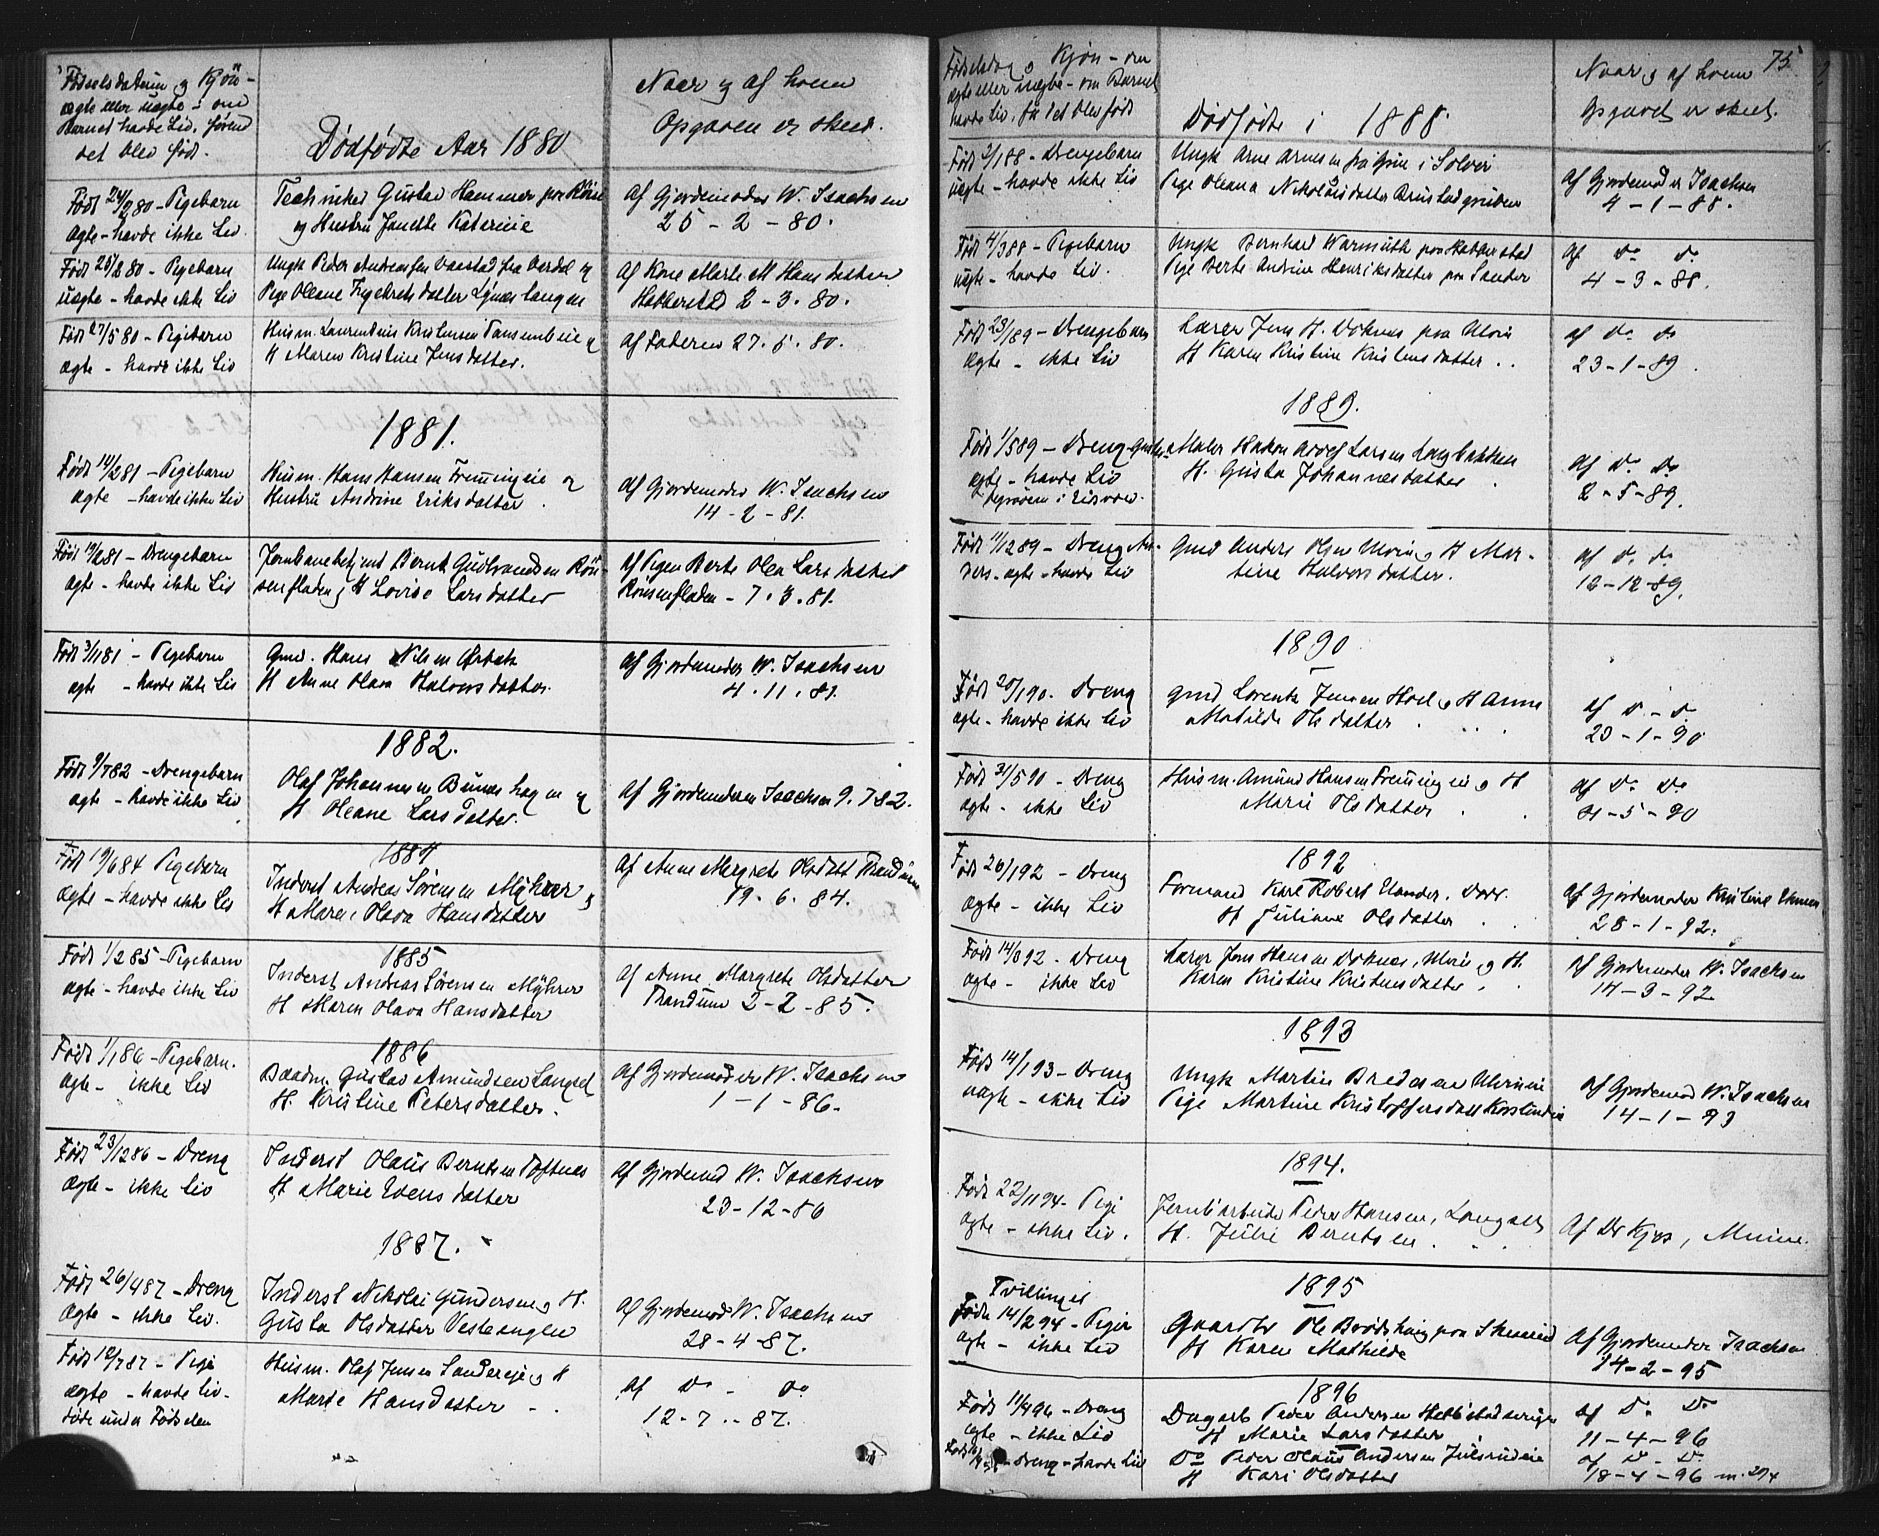 Fødselsdatum og Kjön -
ægte eller uægte - om
Barnet havde Liv, førend
det blev født.
Dødfødte Aar 1880
Naar og af hvem
Opgaven er skeed.
Født 24/2 80 - Pigebarn
ægte - havde ikke Liv
Techniker Gustav Hammer paa
og Hustru Janette Katerine
Af Gjordemoder W. Isachsen
25 - 2 - 80.
80 - Pigebarn
uægte - havde ikke Liv
Ungk Peder Andreassen fra Verdal og
Pige Oleane
Af Kone Marte M Hansdatter
2 - 3. 80.
Født 27/5 80 - Pigebarn
ægte - havde ikke Liv
Husm. Laurentius Kristensen og
H Maren Kristine Jensdatter.
Af Faderen 27. 5. 80.
1881.
Født 14/2 81 - Pigebarn
ægte - havde ikke Liv
Husm. Hans Hansen og
Hustru Andrine Eriksdatter
Af Gjordemoder W. Isachsen
14 - 2 - 81.
Født 19/2 81 - Drengebarn
ægte - havde ikke Liv
Jernbanebetjent Bernt Gudbrandsen Röi-
senfladen og H Lovise Larsdatter
Af Pigen Berte Olea Larsdatter
Röisenfladen - 7. 3. 81.
Født 3/11 81 - Pigebarn
ægte - havde ikke Liv
Gmd. Hans Nilsen
H Anne Olava Halvorsdatter.
Af Gjordemoder W. Isachsen
4. 11. 81.
1882.
Født 9/7 82 - Drengebarn
ægte - havde ikke Liv
Olaf Johannesen og
H Oleane Larsdatter.
Af Gjordemoderen Isachsen 9. 7 82.
1884
Født 19/6 84 Pigebarn
ægte - havde ikke Liv
Inderst Andreas Sørensen Myhrer og
H Maren Olava Hansdatter
Af Anne Margrete Olsdatt Trandum
19. 6. 84.
1885
Født 1/2 85 - Pigebarn
ægte - havde ikke Liv
Inderst Andreas Sørensen Myhrer
H Maren Olava Hansdatter
Af Anne Margrete Olsdatter
Trandum 2 - 2 - 85.
1886
Født 1/1 86 - Pigebarn.
ægte - ikke Liv
Baadm. Gustav Amundsen Langset
H. Kristine Petersdatter.
Af Gjordemoder W. Isachsen
1 - 1 - 86.
Født 23/12 86 - Dreng
ægte - ikke Liv
Inderst Olaus Berntsen Toftnes
H Marie Evensdatter
Af Gjordemod W. Isachsen
23 - 12 - 86
1887.
Født 26/4 87 - Dreng
ægte - ikke Liv.
Inderst Nikolai Gundersen og H.
Gusta Olsdatter Vesleengen
Af Gjordemod W. Isachsen
28 - 4 - 87.
Født 12/7 87 - Pige
ægte - havde Liv -
døde under Fødselen
Husm. Olaf Jensen Sandereje og H
Marte Hansdatter
Af Do - Do
12 - 7 - 87.
75
Fødselsdag og Kjøn - om
ægte eller uægte - om Barnet
havde Liv, før det blev født
Dødfødte i 1888.
Naar og af hvem
Opgavet er skeet.
Født 2/1 88 - Drengebarn
uægte - havde ikke Liv
Ungk Arne Arnesen fra i Solver
Pige Oleana Nikolaisdatter
Af Gjordemoder Isachsen
4 - 1 - 88.
Født 4/3 88 - Pigebarn
uægte - havde Liv.
Ungk Bernhard Warmuth paa
Pige Berte Andrine Henriksdatter paa Sander
Af Do Do
4 - 3 - 88.
Født 23/1 89 - Drengebarn
ægte - ikke Liv
Lærer Jens H. Doknes paa
H Karen Kristine Kristensdatter
Af Do Do
23 - 1 - 89.
1889.
Født 1/5 89 - Dreng
ægte - havde Liv
Maler Hakon Adolf Larsen Langbakken
H. Gusta Johannesdatter
Af Do Do
2 - 5 - 89.
Født 11/12 89 - Dreng An-
ders - ægte - havde Liv
Gmd Anders Olsen og H Mar-
tine Halvorsdatter.
Af Do Do
12 - 12 - 89.
1890
Født 20/1 90. Dreng
ægte - havde ikke Liv
Gmd Lorents Jensen Hoel og H Anne
Matilde Olsdatter
Af D - D
20 - 1 - 90
Født 31/5 90 - Dreng
ægte - ikke Liv
Husm. Amund Hansen og H
Marie Olsdatter
Af Do Do
31 - 5 - 90
1892
Født 26/1 92 - Dreng
ægte - ikke Liv
Formand Karl Robert Elander. Dorr.
H Juliane Olsdatter
Af Gjordemoder Kristine
28 - 1 - 92.
Født 14/3 92 - Dreng
ægte - ikke Liv
Lærer Jens Hansen Doknes, og H.
Karen Kristine Kristensdatter
Af Gjordemoder W. Isachsen
14 - 3 - 92
1893
Født 14/1 93 - Dreng
uægte - ikke Liv
Ungk Martin Bredesen
Pige Martine Kristoffersdatt
Af Gjordemod W. Isachsen
14 - 1 - 93
1894.
Født 22/11 94 - Pige
ægte - ikke Liv.
Jernb.arbeider Peder Hansen, Langset
H. Julie Berntsen
Af Dr Kjos, Minne.
1895
Tvillinger
Født 14/2 94 - Piger
ægte - ikke Liv
Gaardbr Ole paa
H Karen Mathilde
Af Gjordemoder Isachsen
14 - 2 - 95
1896
Født 11/4 96 - Dreng
ægte - ikke Liv
Dagarb Peder Andersen
H Marie Larsdatter
Af Do Do
11 - 4 - 96
Dreng - havde Liv
Do Peder Olaus Andersen Julsrudeie
H Kari Olsdatter
Af D - D
18 - 4 - 96